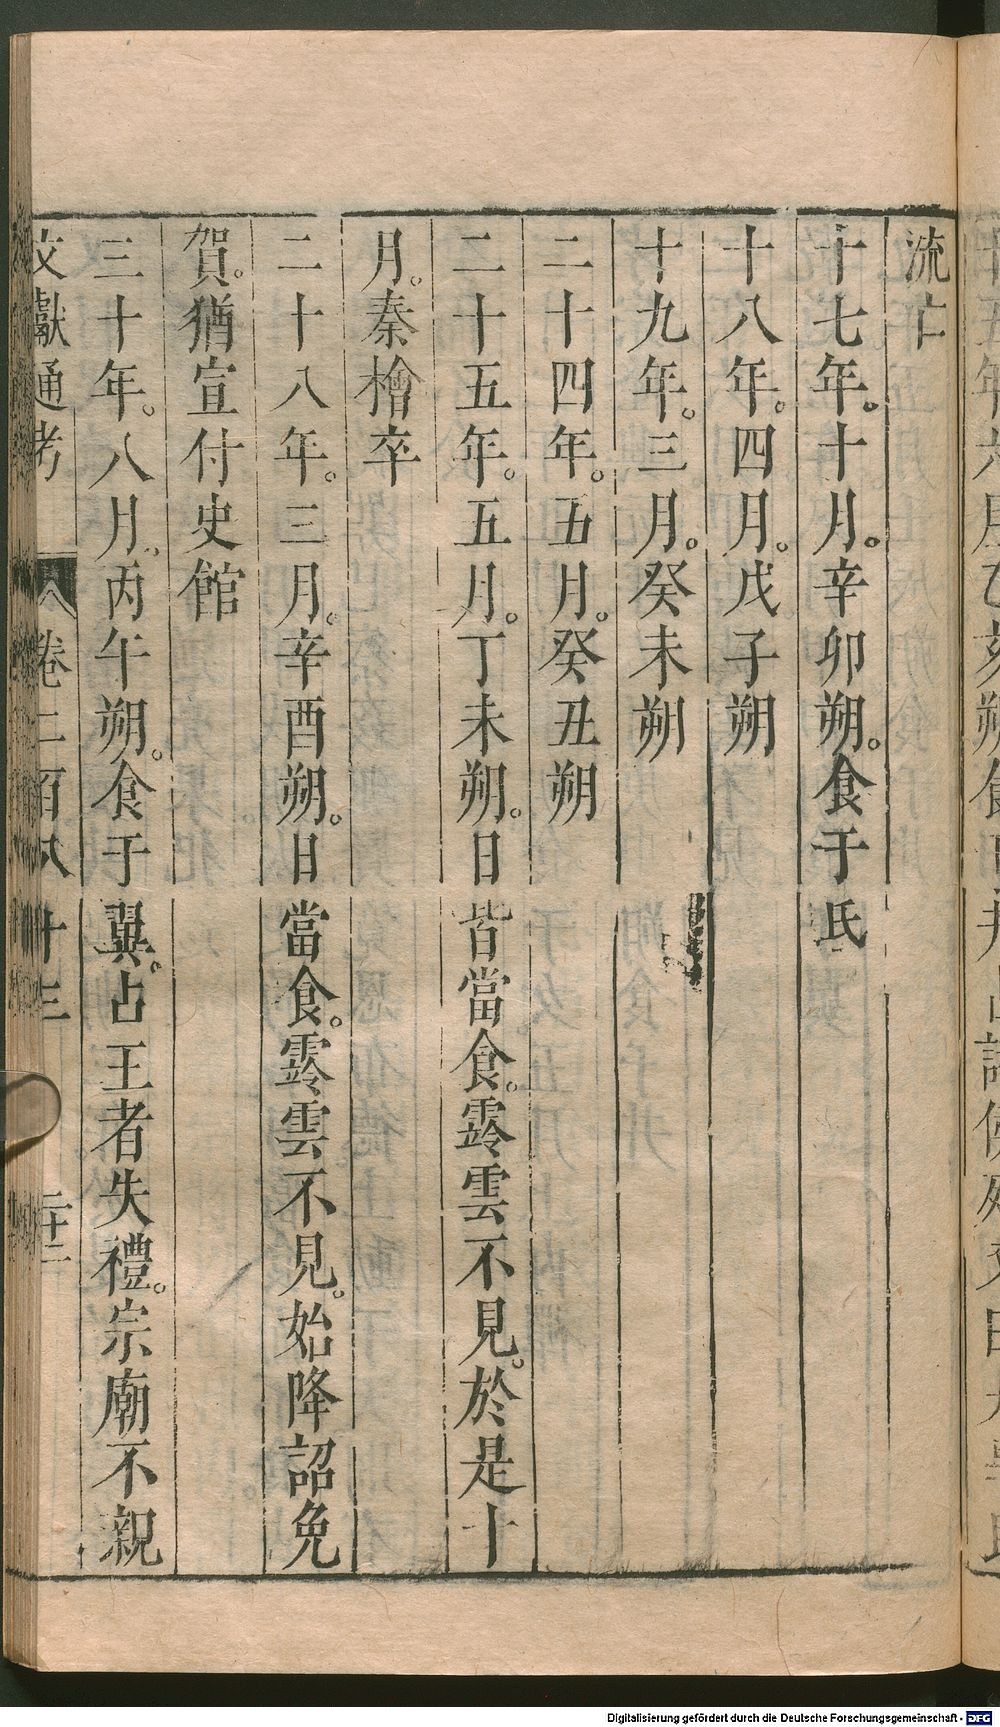 流亡
十七年。十月。辛卯朔。食于氐
十八年。四月。戊子朔
十九年。三月。癸未朔
二十四年。五月。癸丑朔
二十五年。五月。丁未朔。日皆當食。霒雲不見。於是十
月。秦檜卒
二十八年。三月。辛酉朔。日當食。霒雲不見。始降詔免
賀。猶宣付史館
三十年。八月。丙午朔。食于翼。占王者失禮。宗廟不親
文獻通考 卷二百八十三 二十二
Digitalisierung gefördert durch die Deutsche Forschungsgemeinschaft - DFG